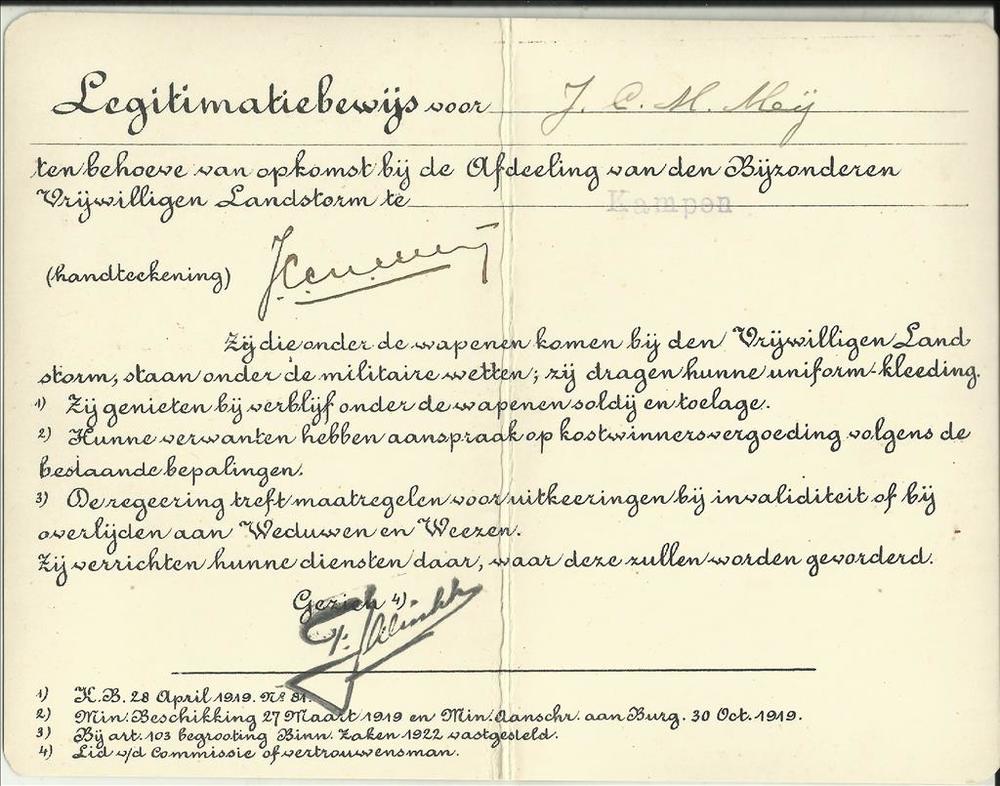 Legitimatiebewijs voor J. C. M. Meij
ten behoeve van opkomst bij de Afdeeling van den Bijzonderen
Vrijwilligen Landstorm te Kampen
(handteekening)
Zij die onder de wapenen komen bij den Vrijwilligen Land
storm, staan onder de militaire wetten; zij dragen hunne uniform-kleeding.
1) Zij genieten bij verblijf onder de wapenen soldij en toelage.
2) Hunne verwanten hebben aanspraak op kostwinnersvergoeding volgens de
bestaande bepalingen.
3) De regeering treft maatregelen voor uitkeeringen bij invaliditeit of bij
overlijden aan Weduwen en Weezen.
Zij verrichten hunne diensten daar, waar deze zullen worden gevorderd.
Gezien 4)
1) K.B. 28 April 1919. No 81.
2) Min. Beschikking 27 Maart 1919 en Min. Aanschr. aan Burg. 30 Oct. 1919.
3) Bij art. 103 begrooting Binn. Zaken 1922 vastgesteld.
4) Lid v/d Commissie of vertrouwensman.